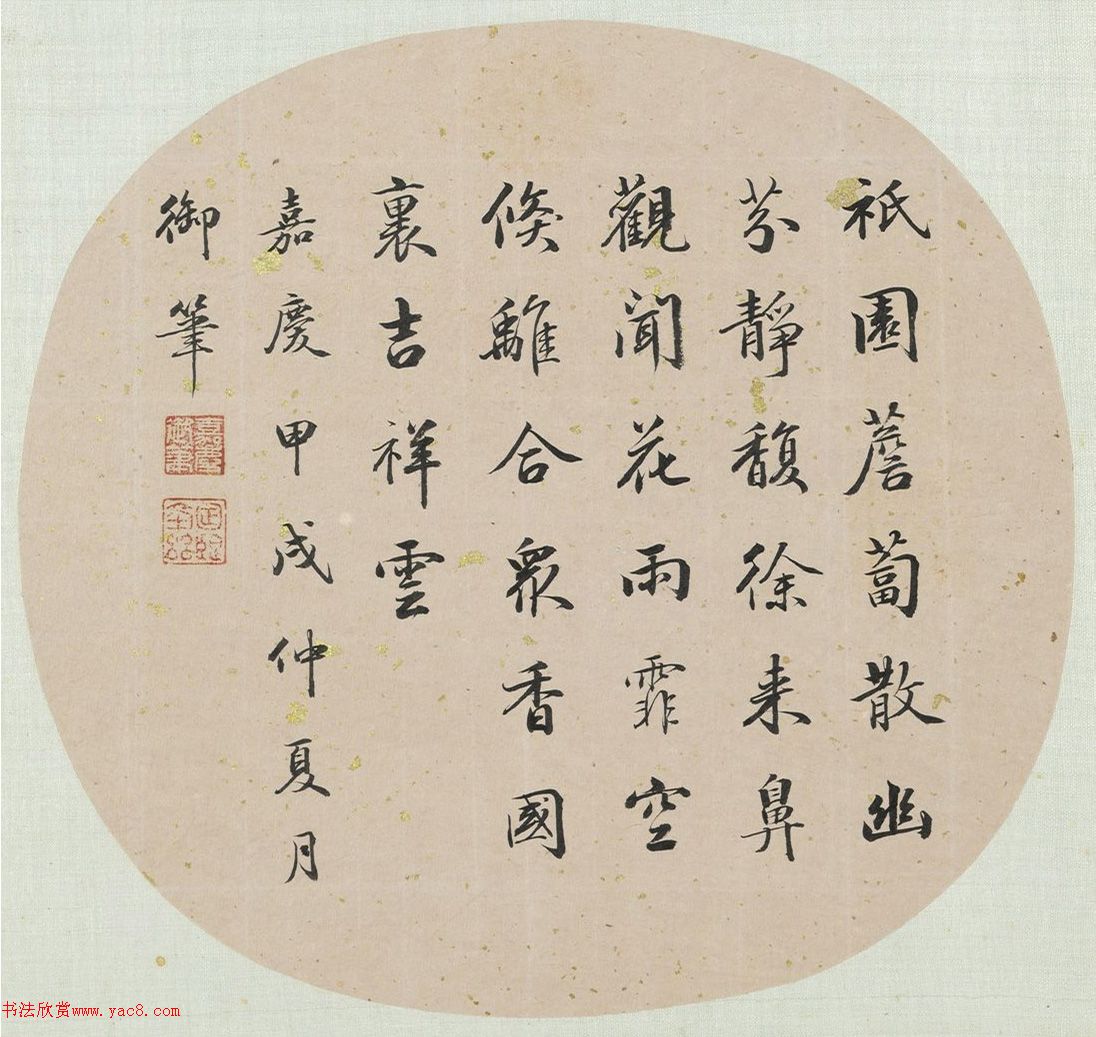 祇園薝蔔散幽
芬靜馥徐来鼻
觀聞花雨霏空
倐離合衆香國
裏吉祥雲
嘉慶甲戌仲夏月
御筆
嘉慶御筆
书法欣赏www.yac8.com